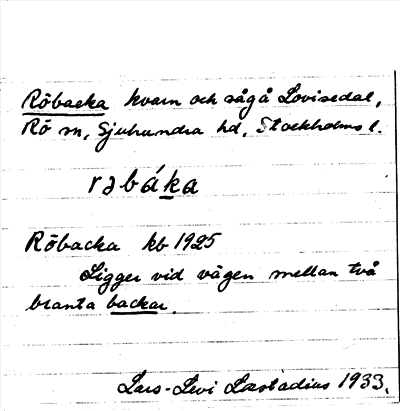 Röbacka kvarn och såg å Lovisedal,
Rö sn, Sjuhundra hd, Stockholms l.
rəbáka
Röbacka kb 1925
Ligger vid vägen mellan två
branta backar.
Lars-Levi Læstadius 1933.